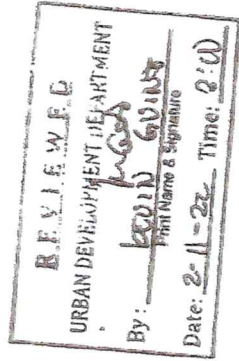 REVIEWED
URBAN DEVELOPMENT DEPARTMENT
By: KEVIN
Print Name & Signature
Date: 2-11-22 Time: 2:00